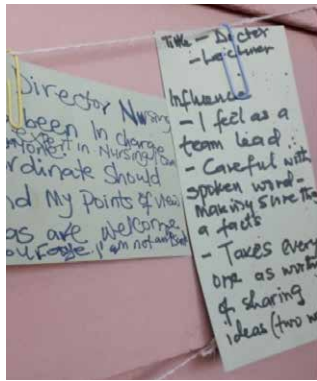 Director Nursing
been In charge
in Nursing
rdinate Should
nd My Points of view
as are welcome
I am not
Title - Doctor
Influence
- I feel as a
team lead
- Careful with
spoken word -
making sure
a facts
- Takes every
one as
of sharing
ideas (two